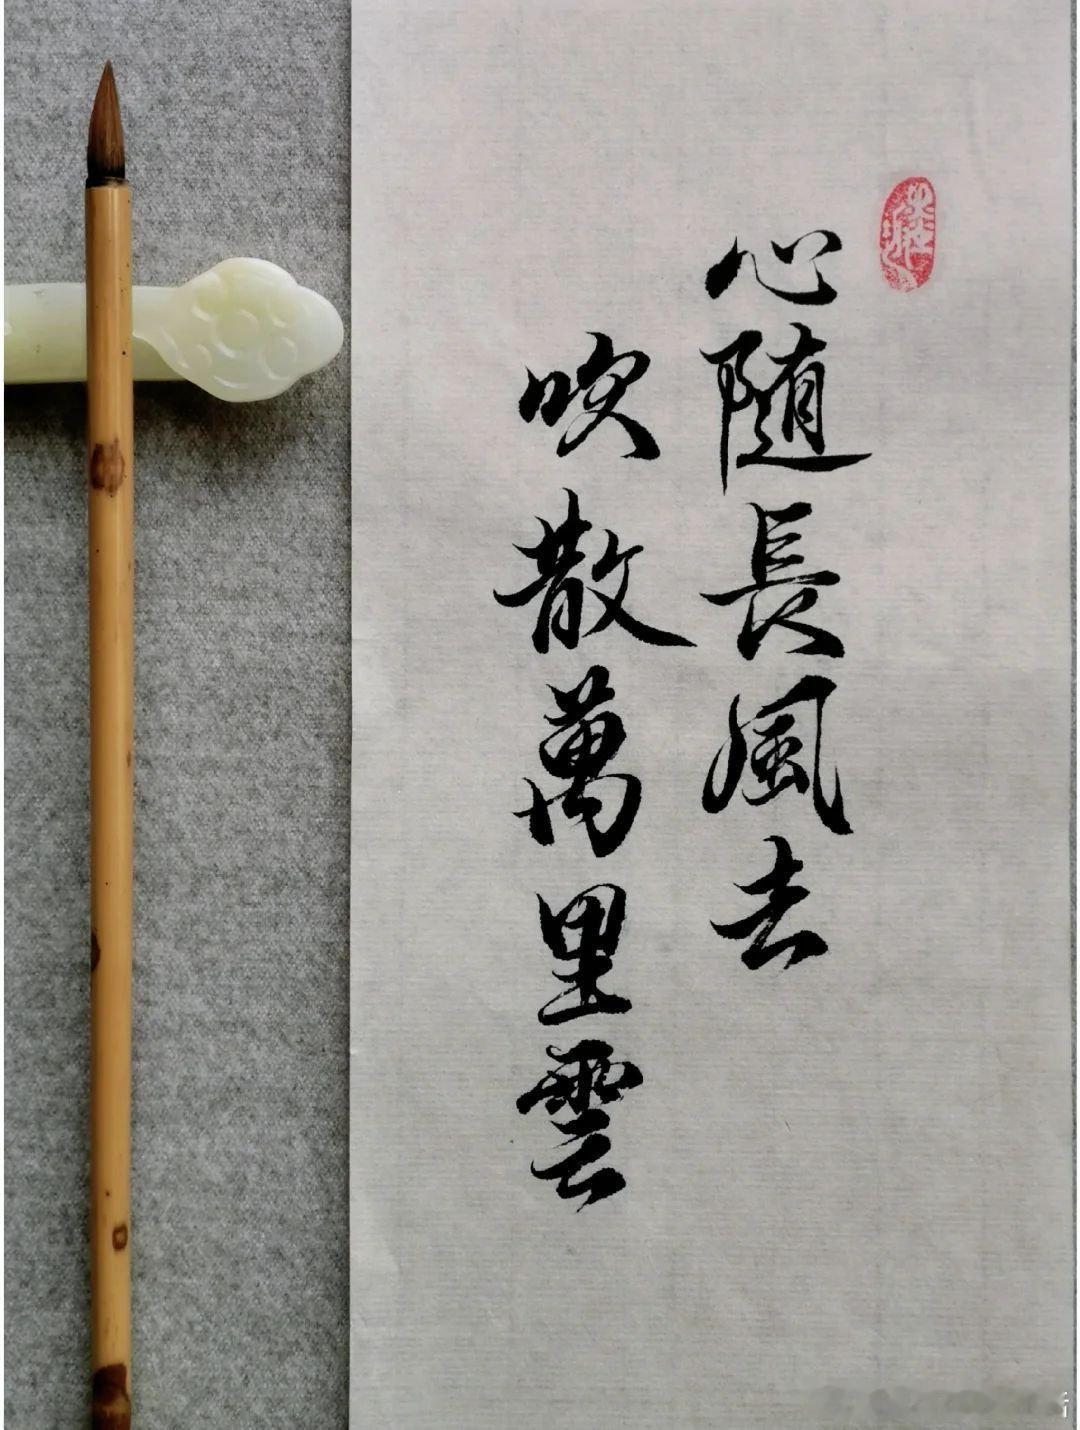 心随長風去
吹散萬里雲